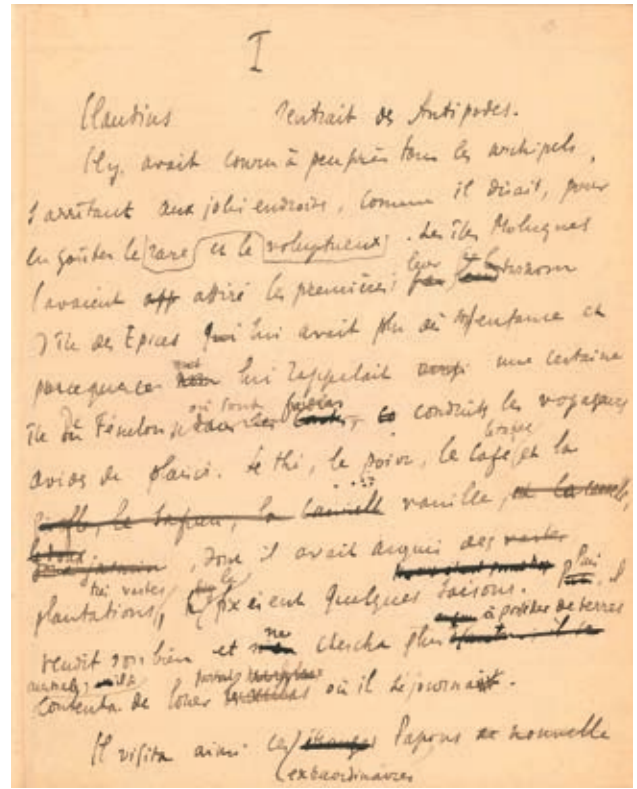 I
Claudius rentrait des Antipodes.
Il y avait couru à peu près tous les archipels,
s'arrêtant aux jolis endroits, comme il disait, pour
en goûter le rare et le voluptueux. Les îles Moluques
l'avaient attiré les premières; leur surnom
d'île des Epices lui avait plu dès enfance et
parce que ce mot lui rappelait aussi une certaine
île où Fénelon où sont conduits les voyageurs
avides de plaisir. Le thé, le poivre, le café et la
girofle, le safran, la cannelle vanille, et la cannelle,
jasmin, dont il avait acquis des vastes
très vastes
plantations, le fixèrent quelques saisons. Puis, il
vendit son bien et ne chercha plus à posséder de terres
contenta de louer où il séjournait.
Il visita ainsi ces étranges Papous nouvelle
extraordinaires